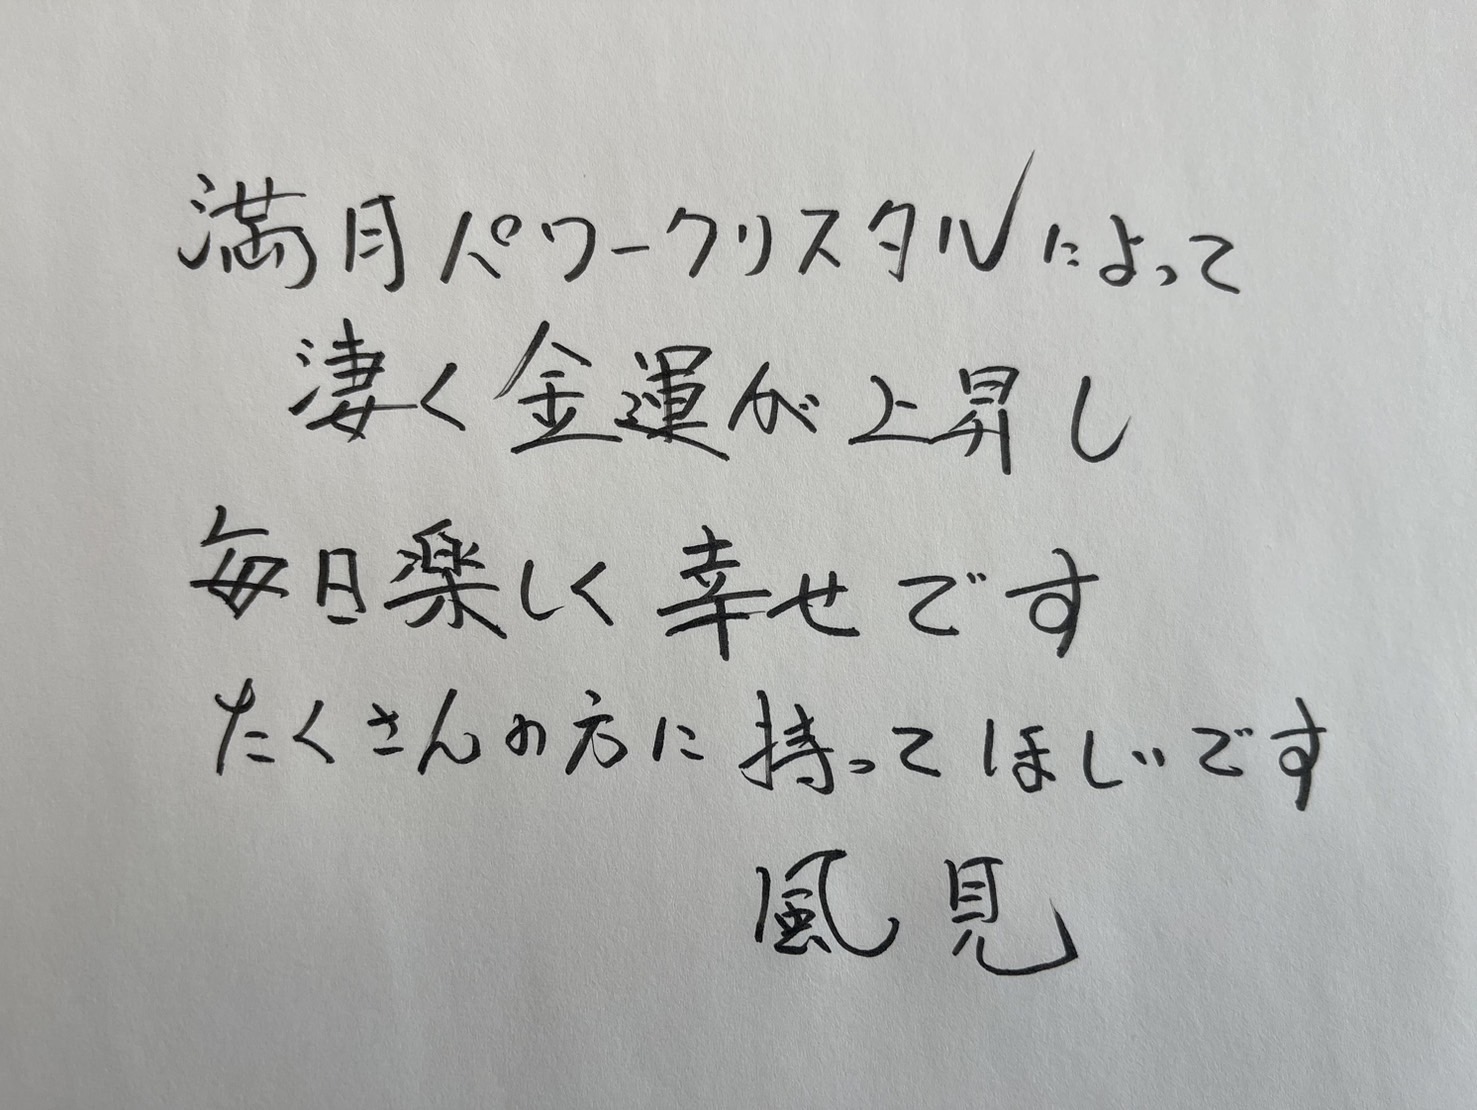 満月パワークリスタルによって
凄く金運が上昇し
毎日楽しく幸せです
たくさんの方に持ってほしいです
風見